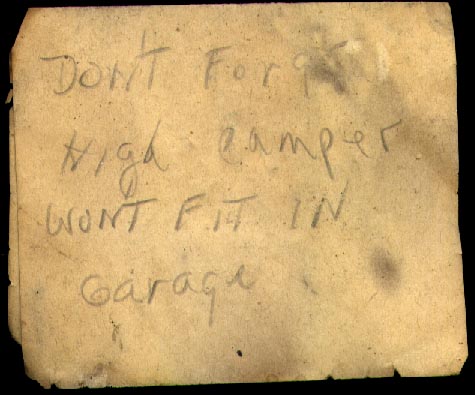 DON'T Forget
High camper
WONT FIT IN
Garage